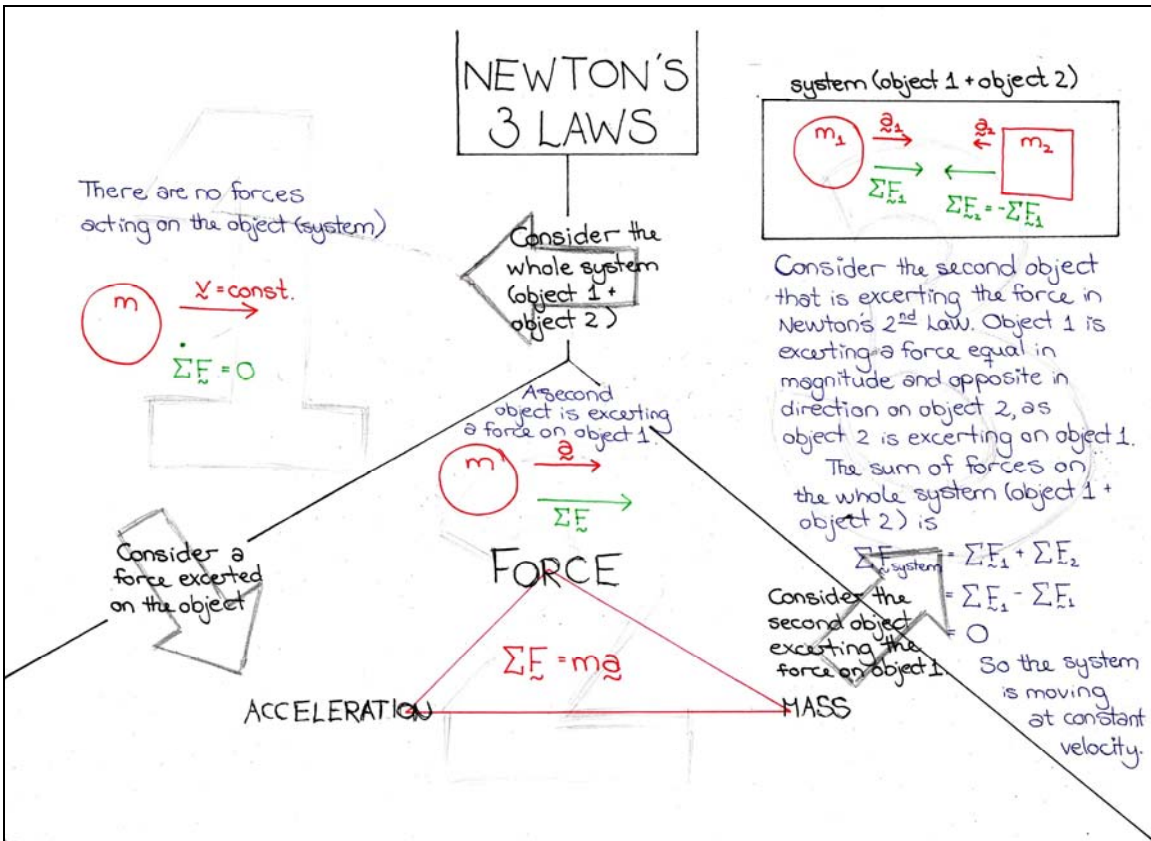 NEWTON'S
3 LAWS
There are no forces
acting on the object (system)
m
v = const.
ΣF = 0
Consider the
whole system
(object 1 +
object 2)
Consider a
force excerted
on the object
A second
object is excerting
a force on object 1.
m
a
ΣF
FORCE
ΣF = ma
ACCELERATION
MASS
Consider the
second object
excerting the
force on object 1.
system (object 1 + object 2)
m₁
a₁
a₂
m₂
ΣF₁
ΣF₂ = -ΣF₁
Consider the second object
that is excerting the force in
Newton's 2nd Law. Object 1 is
excerting a force equal in
magnitude and opposite in
direction on object 2, as
object 2 is excerting on object 1.
The sum of forces on
the whole system (object 1 +
object 2) is
ΣF system = ΣF₁ + ΣF₂
= ΣF₁ - ΣF₁
= 0
So the system
is moving
at constant
velocity.